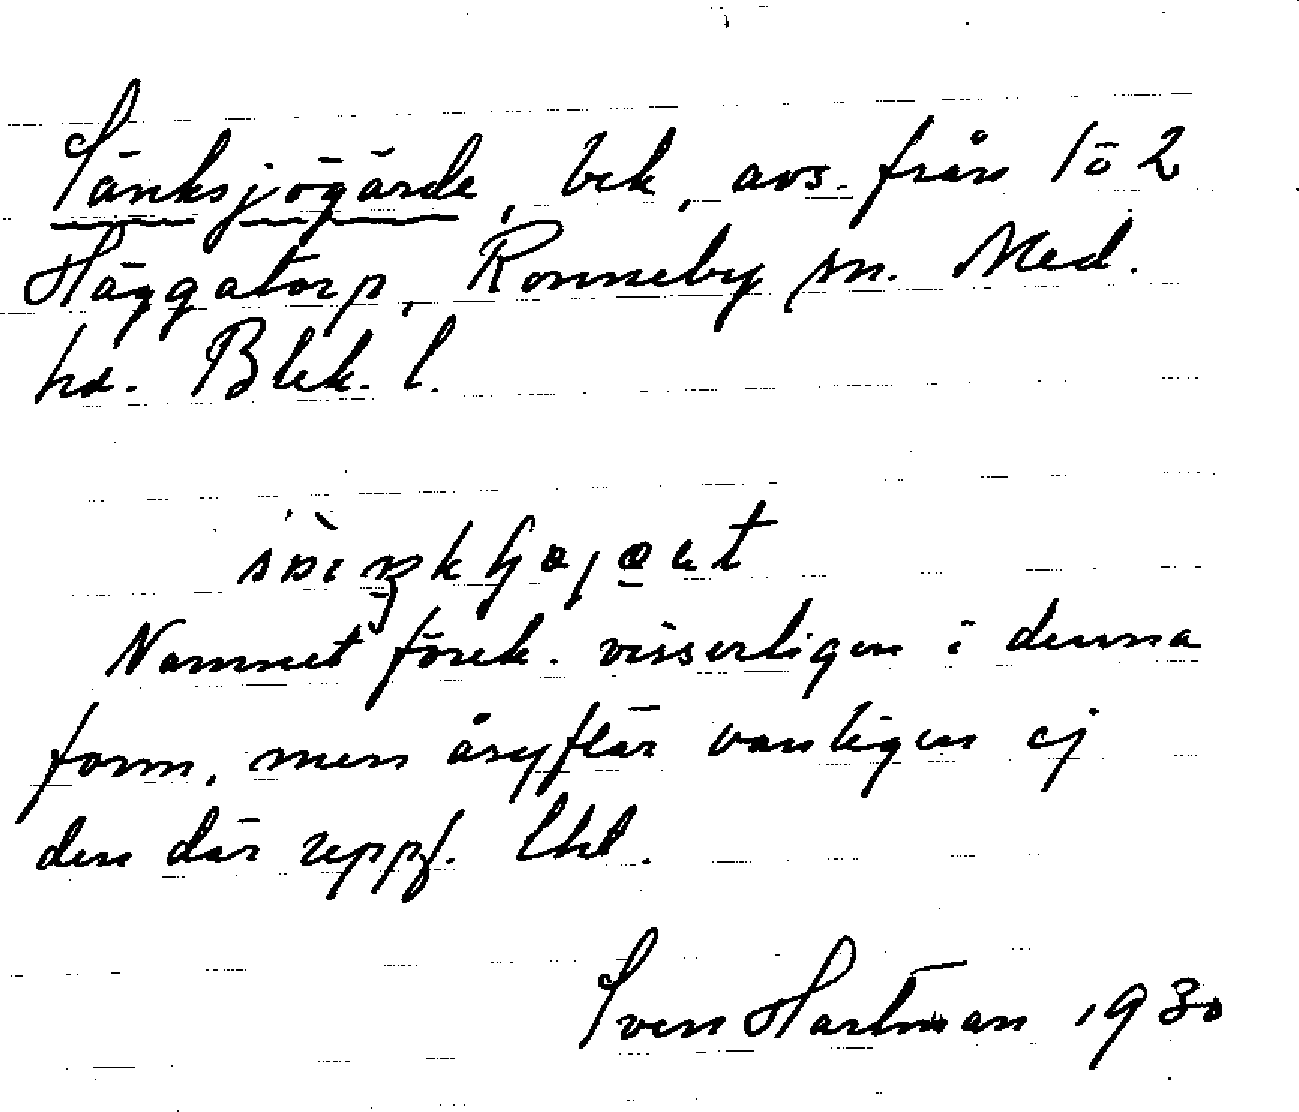 Sänksjögärde, bek, avs. från 1ö2
Häggatorp, Ronneby sn. Med.
hd. Blek. l.
Namnet förek. visserligen i denna
form, men åsyftar vanligen ej
den där uppf. lkl.
Sven Hartman 1930